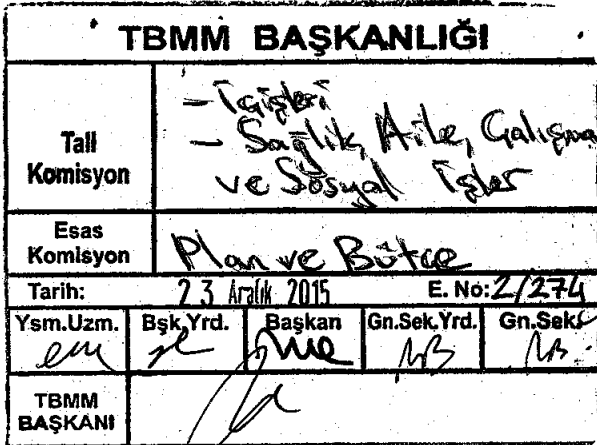 TBMM BAŞKANLIĞI
Tali
Komisyon
- İçişleri
- Sağlık, Aile, Çalışma
ve Sosyal İşler
Esas
Komisyon
Plan ve Bütçe
Tarih: 23 Aralık 2015 E. No: 2/274
Ysm.Uzm. Bşk.Yrd. Başkan Gn.Sek.Yrd. Gn.Sek.
TBMM
BAŞKANI